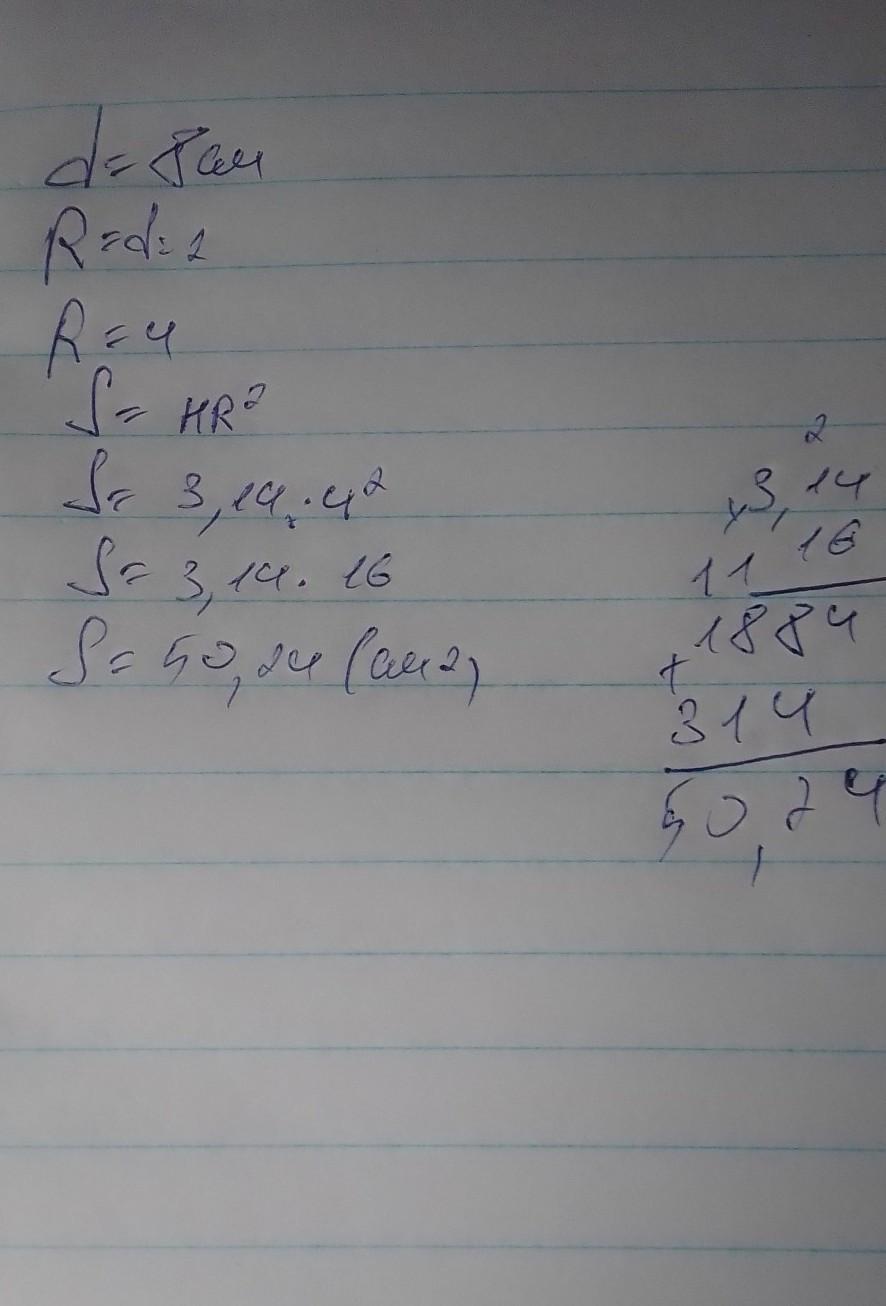 d = 8 см
R = d : 2
R = 4
S = ПR²
S = 3,14 · 4²
S = 3,14 · 16
S = 50,24 (см2)
2
× 3,14
16
11
1884
+
314
50,24